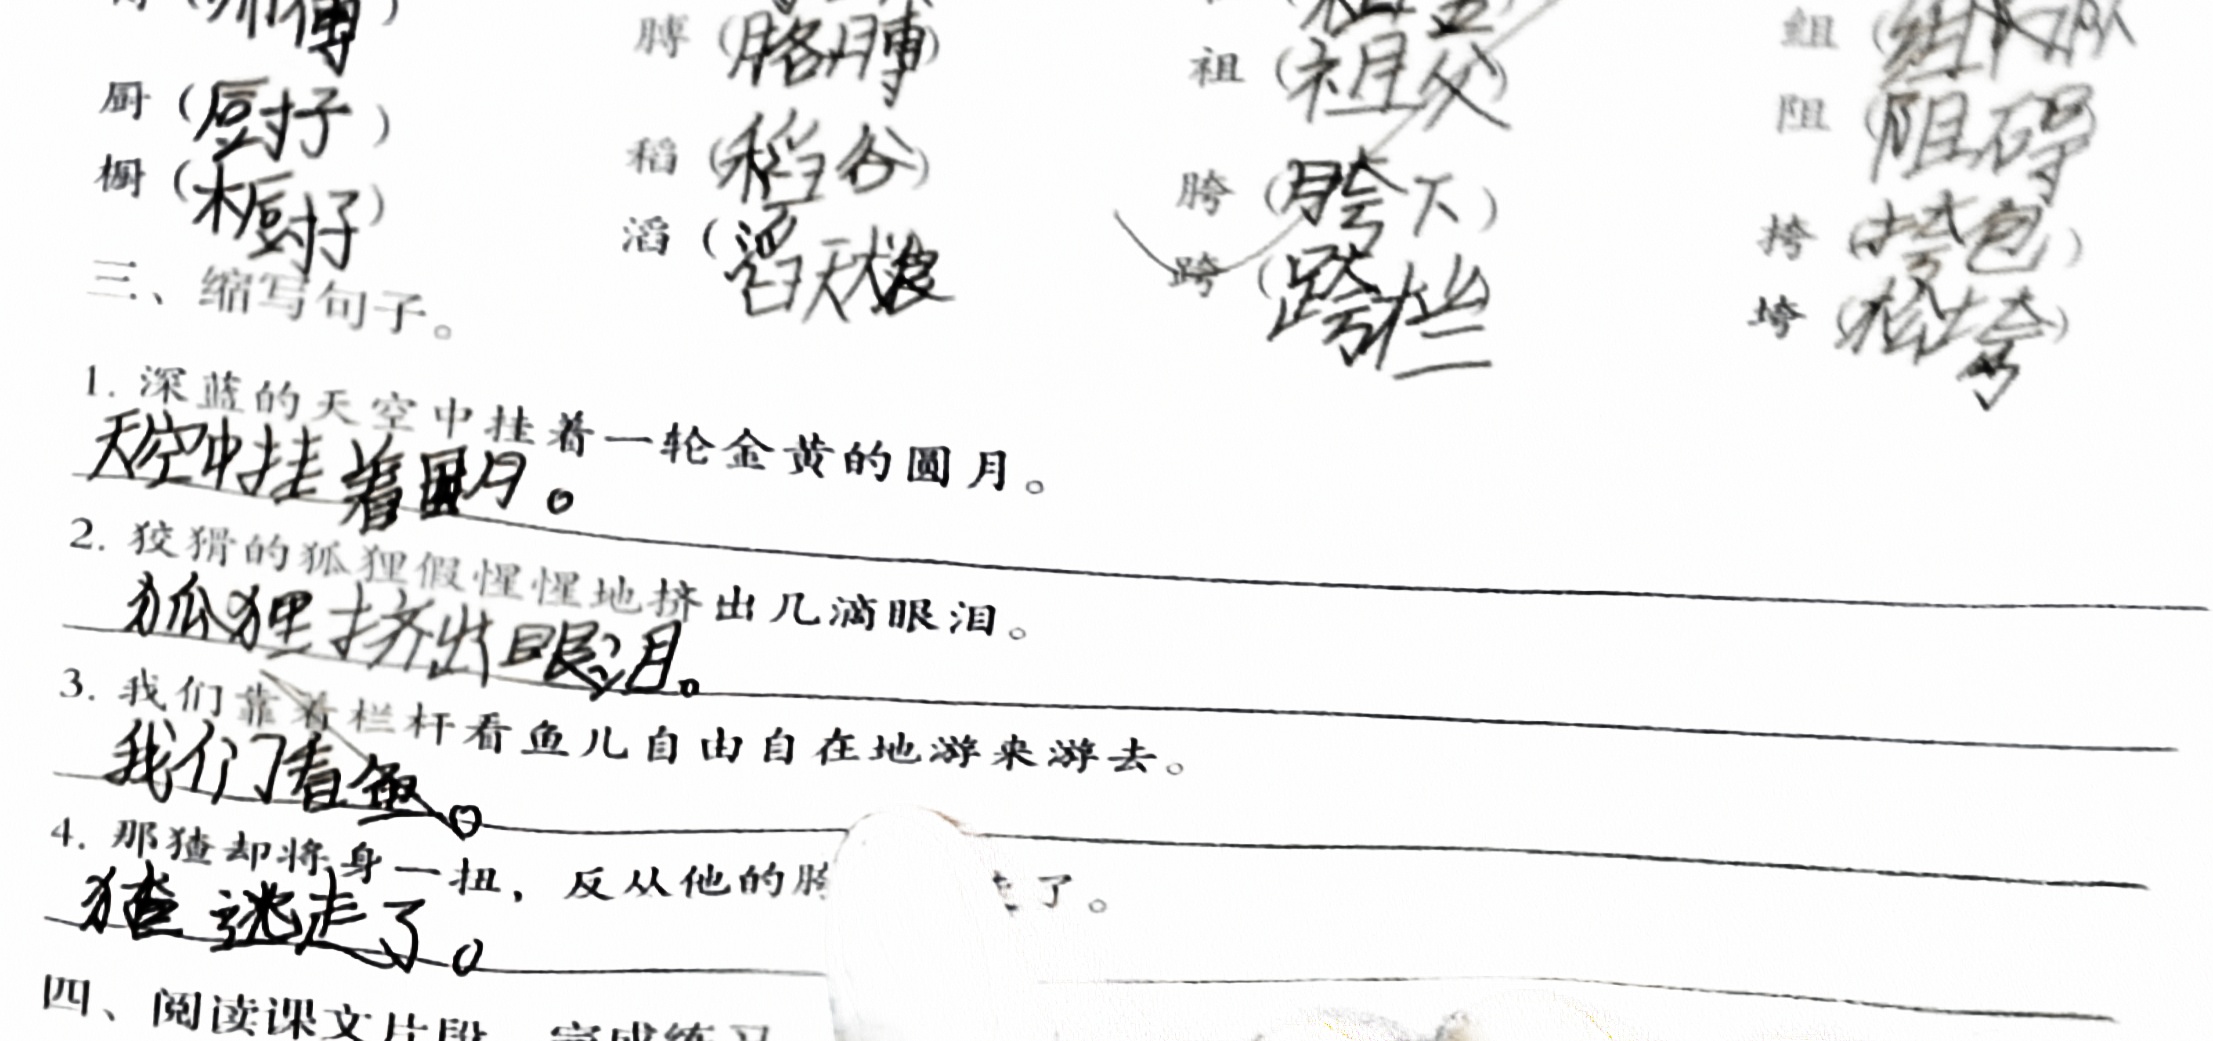 傅（师傅）
膊（胳膊）
祖（祖父）
组（组队）
厨（厨子）
稻（稻谷）
阻（阻碍）
橱（橱子）
滔（滔天大浪）
胯（胯下）
挎（挎包）
跨（跨栏）
垮（松垮）
三、缩写句子。
1. 深蓝的天空中挂着一轮金黄的圆月。
天空中挂着圆月。
2. 狡猾的狐狸假惺惺地挤出几滴眼泪。
狐狸挤出眼泪。
3. 我们靠着栏杆看鱼儿自由自在地游来游去。
我们看鱼。
4. 那猹却将身一扭，反从他的胯 走了。
猹逃走了。
四、阅读课文片段，完成练习